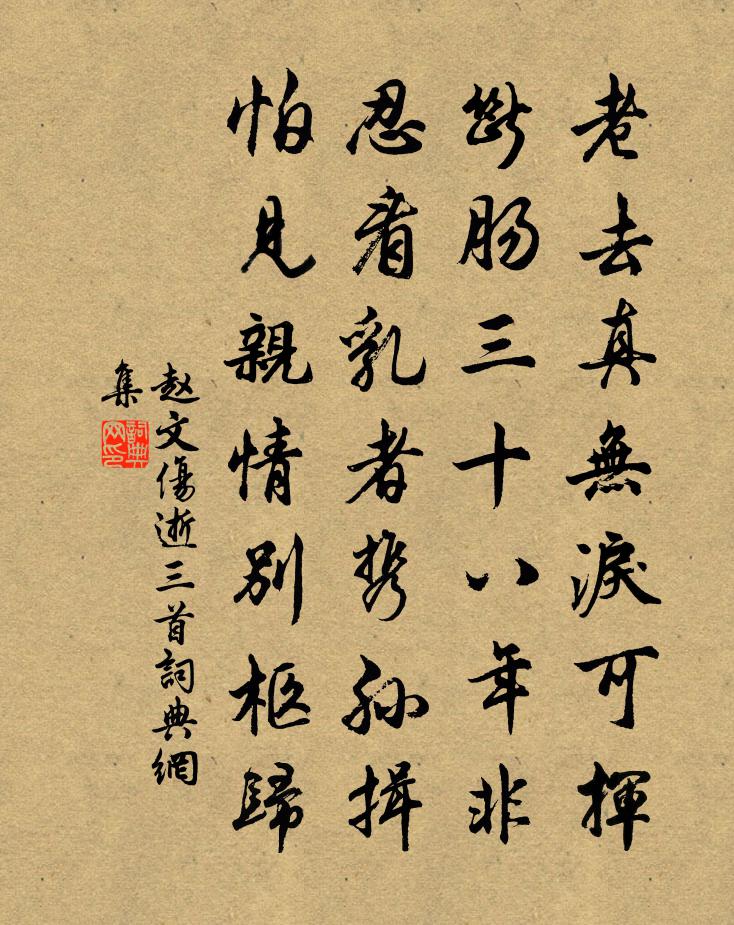 老去真無淚可揮
斷腸三十八年非
忍看乳者携孙揖
怕見親情别柩歸
赵文傷逝三首詞典網
集
詞典
网印